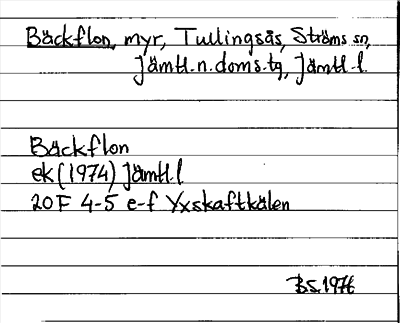 Bäckflon, myr, Tullingsås, Ströms sn,
Jämtl.n.doms.tg, Jämtl.l.
Bäckflon
ek (1974) Jämtl.l
20F 4-5 e-f Yxskaftkälen
BS.1976